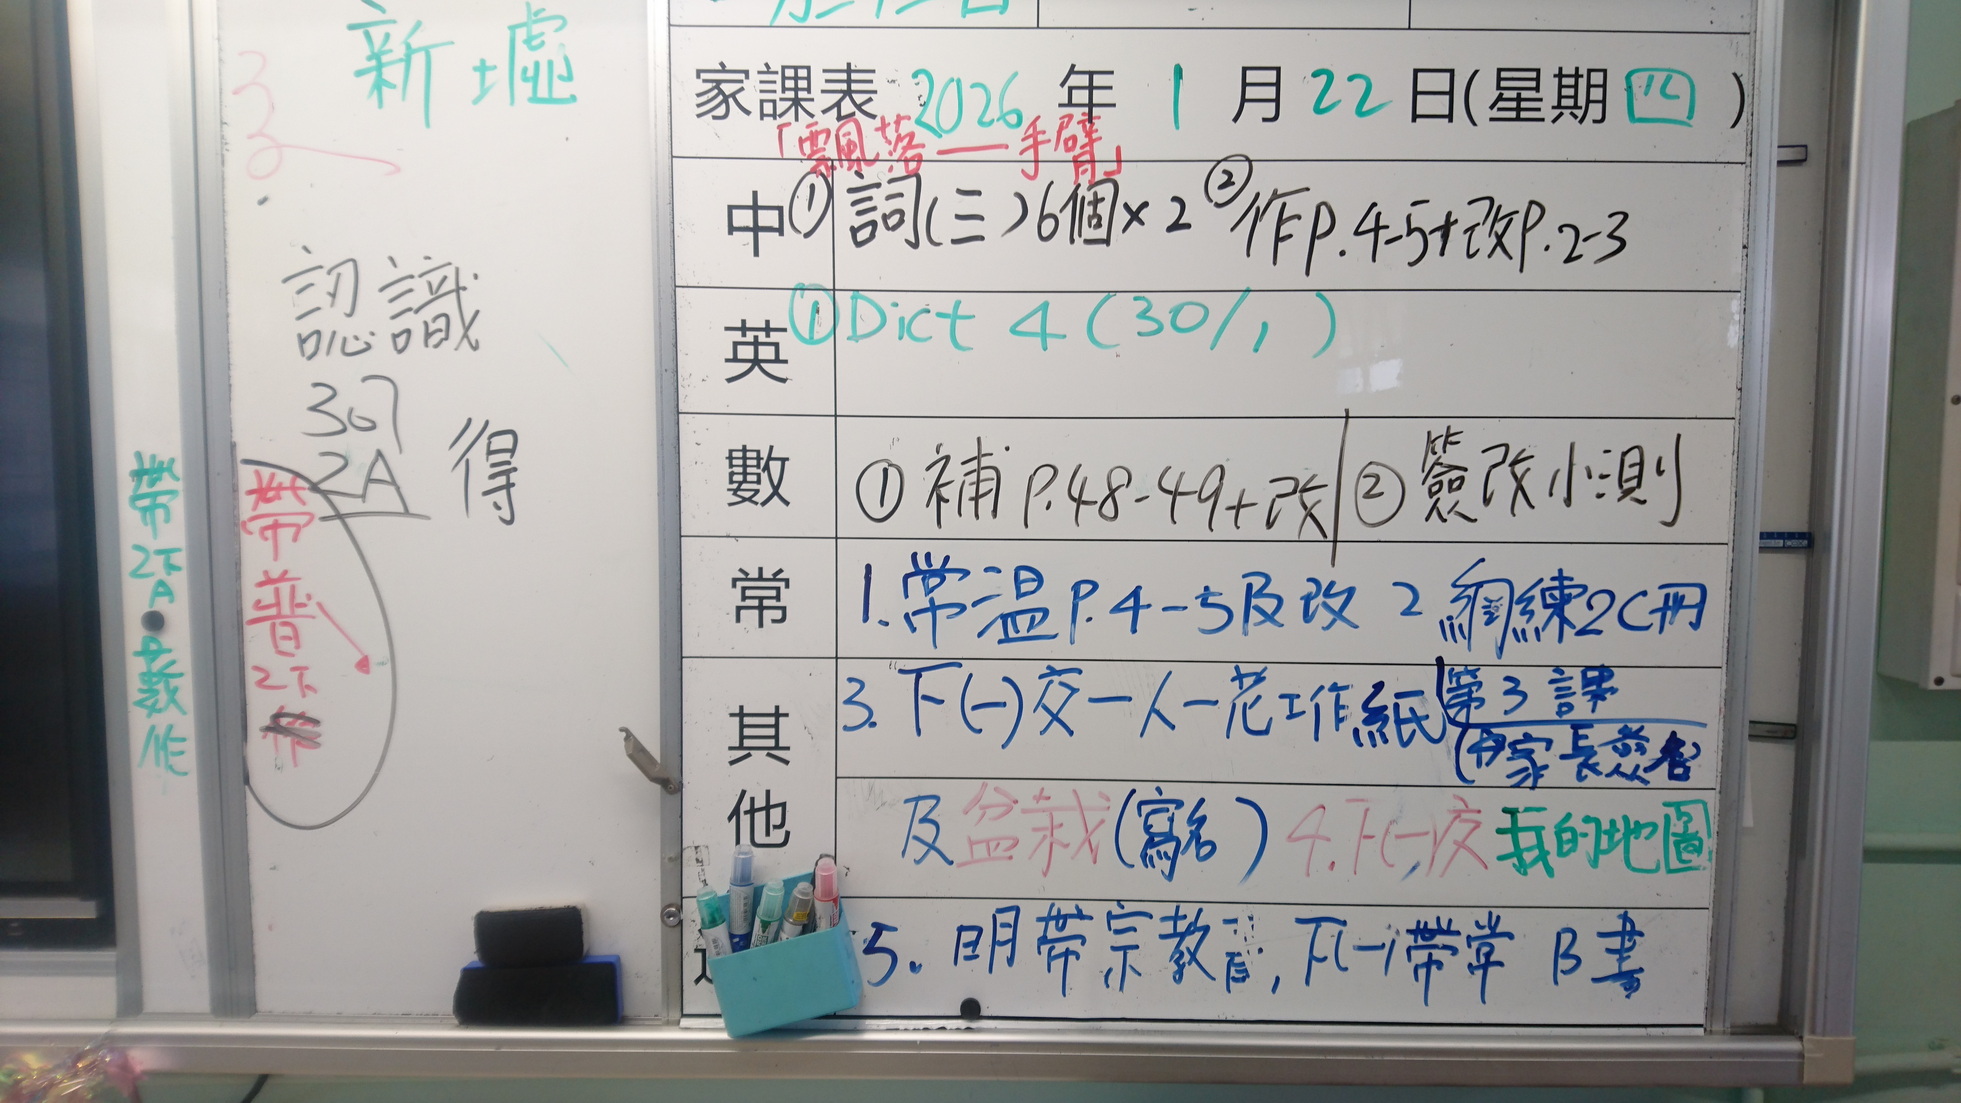 新墟
認識
307
2A
得
帶2下A
數作
帶普2下
家課表 2026 年 1 月 22 日(星期四)
「飄風落——手臂」
中 ①詞(三)6個×2 ②作P.4-5+改P.2-3
英 ①Dict 4 (30/1)
數 ①補P.48-49+改 ②簽改小測
常 1.常溫P.4-5及改 2 網練2C冊
其他 3.下(一)交一人一花工作紙 第3課
(由家長簽名)
及盆栽(寫名) 4.下(一)交我的地圖
5.明帶宗教育,下(一)帶常B書